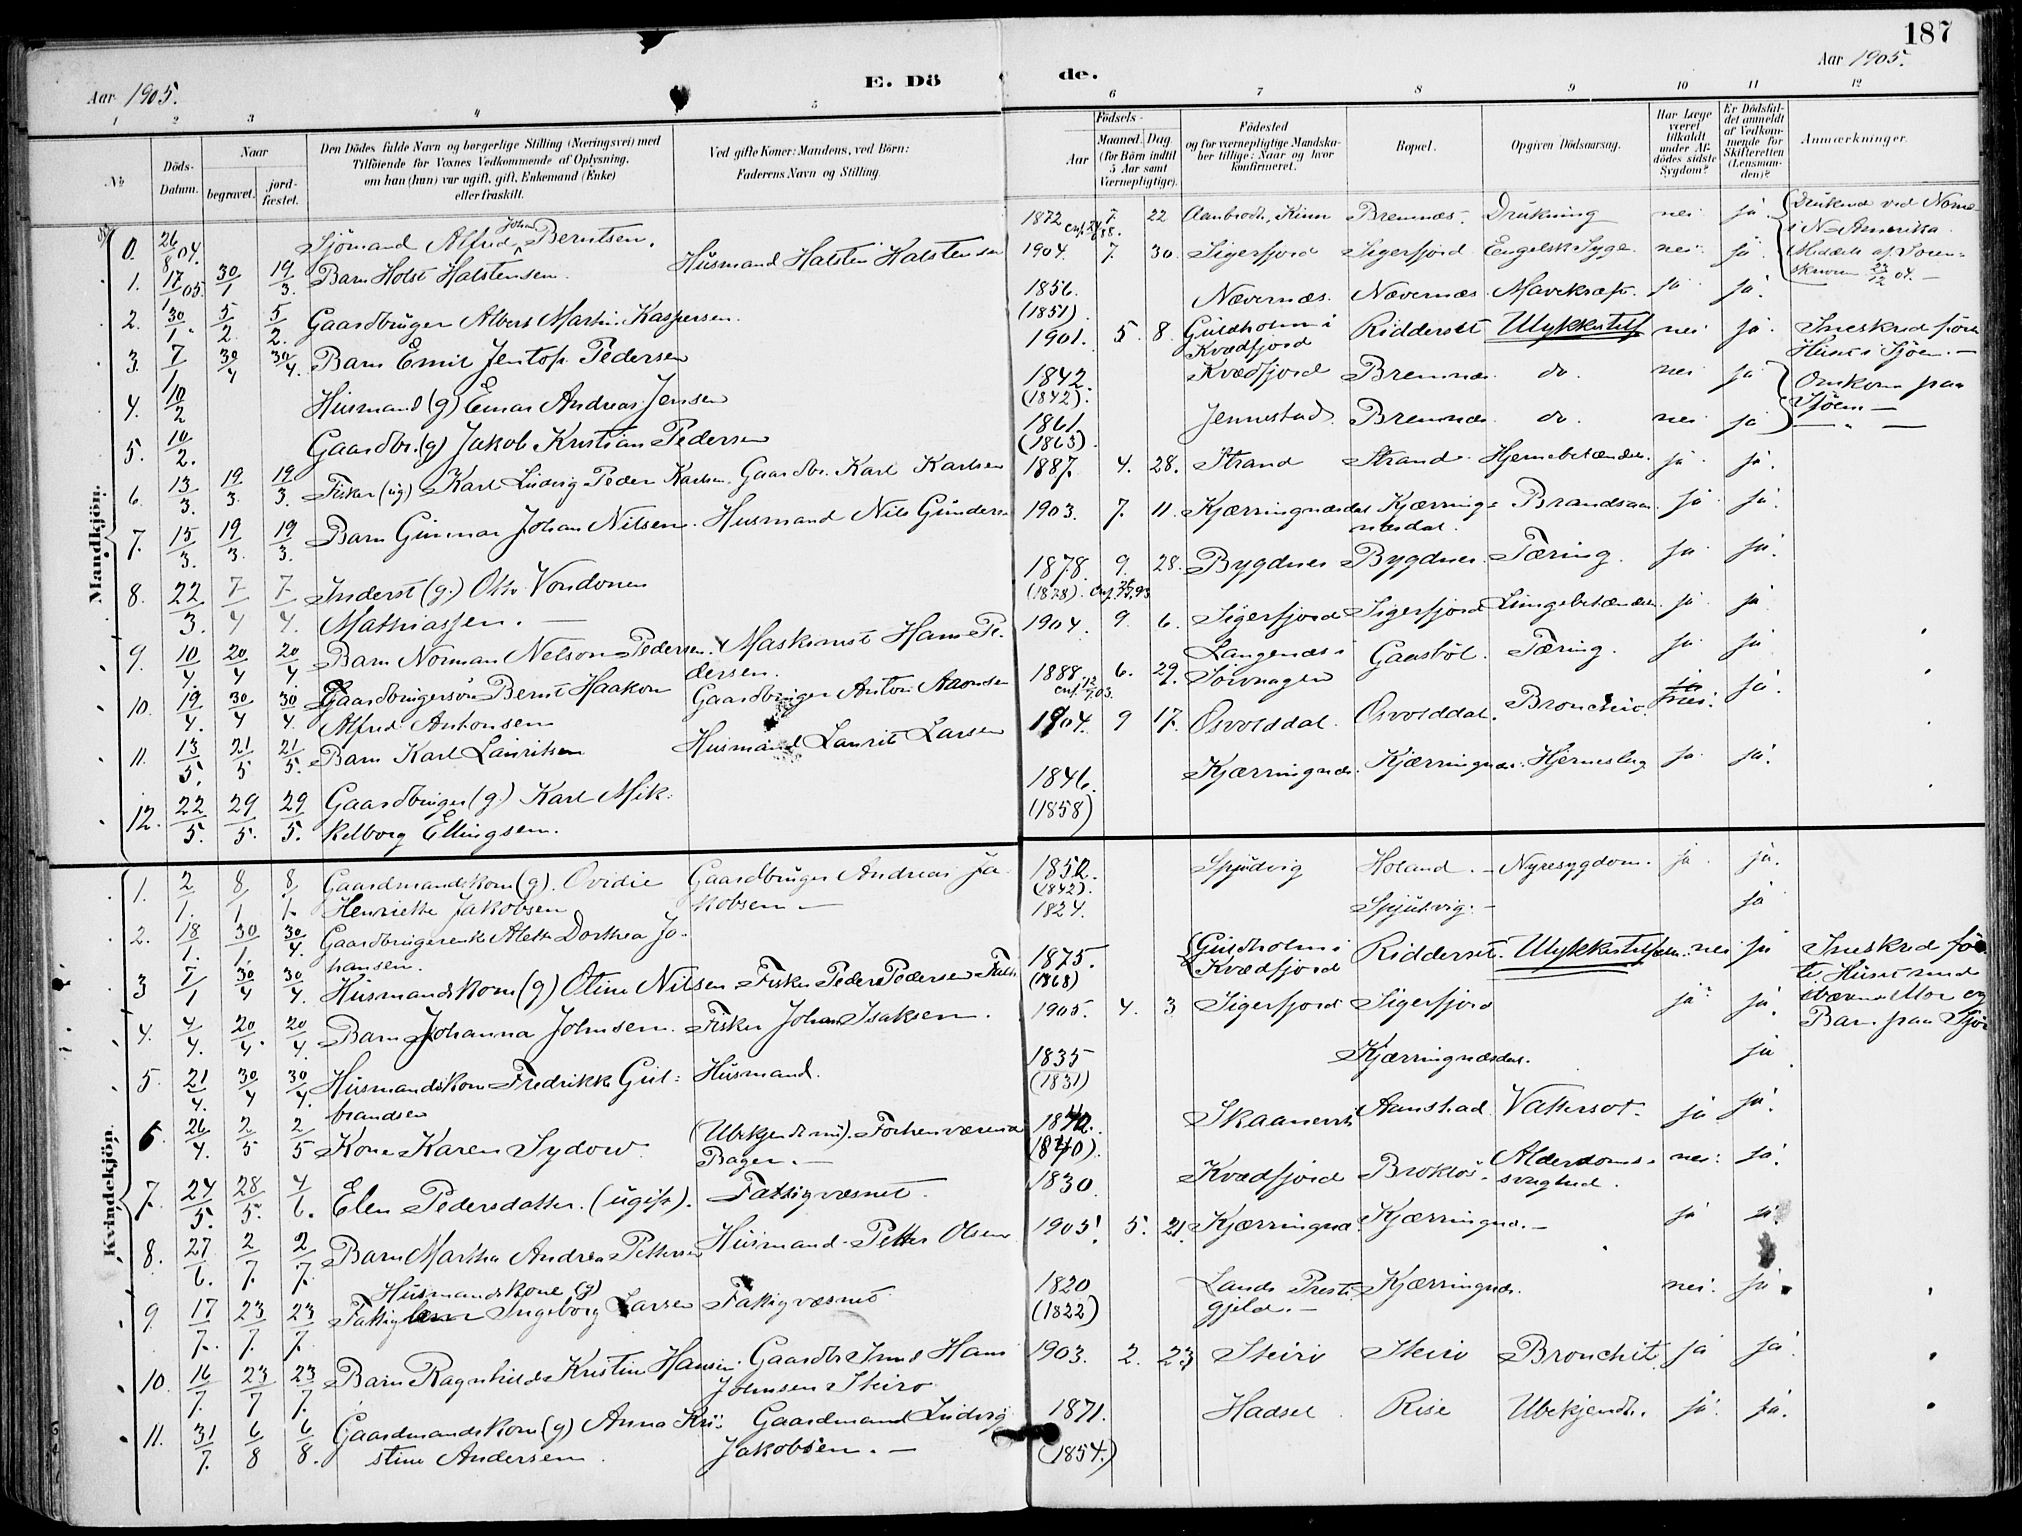 187
Aar 1905.
E. Dö de.
Aar 1905.
1 2 3 4 5 6 7 8 9 10 11 12
No
Döds-Datum.
Naar
begravet.
jord-fæstet.
Den Dödes fulde Navn og borgerlige Stilling (Næringsvei) med
Tilföiende for Voxnes Vedkommende af Oplysning,
om han (hun) var ugift, gift, Enkemand (Enke)
eller fraskilt.
Ved gifte Koner: Mandens, ved Börn:
Faderens Navn og Stilling.
Födsels-
Aar
Maaned. Dag
(for Börn indtil
5 Aar samt
Værnepligtige).
Födested
og for værnepligtige Mandska-
ber tillige: Naar og hvor
konfirmeret.
Bopæl.
Opgiven Dödsaarsag.
Har Læge
været
tilkaldt
under Af-
dödes sidste
Sygdom?
Er Dödsfal-
det anmeldt
af Vedkom-
mende for
Skifteretten
(Lensman-
den)?
Anmærkninger.
Mandkjön.
0. 26/8 04. Sjömand Alfred Johan Berntsen. 1872 7. 22 Kinn Bremnæs. Drukning nei ja Druknet ved Nome
i N. Amerika.
1. 17/1 05. 30/1 19/3. Barn Holst Halstensen. Husmand Halsten Halstensen 1904. 7. 30. Sigerfjord Sigerfjord Engelsk Syge. nei. ja.
2. 30/1. 5/2. 5/2. Gaardbruger Albert Martin Kaspersen. 1856. (1851) Nævernæs. Nævernæs. Mavekræft. ja ja.
3. 7/1 30/4 30/4. Barn Emil Jentoft Pedersen 1901. 5. 8. Guldholm i
Kvædfjord Ridderset Ulykkestilf nei ja. Sneskred förte
Huset i Sjöen. —
4. 10/2 Husmand (g) Einar Andreas Jensen 1842. (1842). Kvædfjord Bremnæs. do. nei ja Omkom paa
Sjöen —
5. 10/2. Gaardbr. (g) Jakob Kristian Pedersen 1861. (1863). Jennestad. Bremnæs do. nei ja — „ —
6. 13/3. 19/3. 19/3. Fisker (ug) Karl Ludvig Peder Karlsen. Gaardbr. Karl Karlsen 1887. 4. 28. Strand Strand. Hjernebetændels. ja. ja.
7. 15/3. 19/3. 19/3. Barn Gunnar Johan Nilsen. Husmand Nils Gundersen 1903. 7. 11. Kjærringnæsdal Kjærring-
næsdal. Brandsaar. ja. ja.
8. 22/3. 7/4 7/4. Inderst (g.) Otto Vondonen
Mathiassen. — 1878. (1878). 9. 28. Bygdnes Bygdnes. Tæring. ja. ja.
9. 10/4. 20/4 20/4. Barn Norman Nelson Pedersen. Maskinist Hans Pe-
dersen. 1904. 9. 6. Sigerfjord Sigerfjord Lungebetændelse. ja. ja.
10. 19/4. 30/4 30/4 Gaardbrugersön Bernt Haakon
Alfred Antonsen Gaardbruger Anton 1888. 6. 29. Langenæs i
Gaasböl. Tæring. ja ja
11. 13/5. 21/5 21/5. Barn Karl Lauritsen Husmand Laurits Larsen 1904. 9 17. Osvolddal. Osvolddal. Bronchit. nei. ja.
12. 22/5. 29/5. 29/5. Gaardbruger (g.) Karl Mik-
kelborg Ellingsen. 1846. (1858) Kjærringnæs. Kjærringnæs. Hjerneslag ja ja.
Kvindekjön.
1. 2/1. 8/1 8/1. Gaardmandskone (g). Ovidie
Henriette Jakobsen Gaardbruger Andreas Ja-
kobsen — 1852. (1842). Spjudvig Holand. — Nyresygdom. ja. ja.
2. 18/1. 30/1. 30/4. Gaardbrugerenke Aletta Dorthea Jo-
hansen. 1824. Spjutvig. — ja
3 7/1 30/4 30/4. Husmandskone (g) Otine Nilsen Fisker Peder Pedersen 1875. (1868) Guldholm i
Kvædfjord Ridderset. Ulykkestilfælde. nei ja Sneskred för
te Huset med
Mor og
Barn paa Sjö
4. 4/4. 20/4. 20/4. Barn Johanna Johnsen. Fisker Johan Isaksen. 1905. 4. 3 Sigerfjord Sigerfjord ja ja.
5. 21/4. 30/4 30/4. Husmandskone Fredrikke Gul-
brandsen Husmand. 1835 (1831) Kjærringnæsdal. ja
6. 26/4. 2/5 2/5 Kone Karen Sydow. (Ubekjendt nu). Forhenværende
Bager. — 1842. (1840). Aanstad. Vattersot. ja ja.
7. 24/5. 28/5. 4/6. Elen Pedersdatter. (ugift). Fattigvæsnet. 1830. Kvædfjord Brokløs. Alderdoms-
svaghed. nei. ja.
8. 27/6. 2/7. 2/7. Barn Martha Andrea Pettersen Husmand Petter Olsen 1905. 5. 21. Kjærringnæs Kjærringnæs. — ja ja.
9. 17/7. 23/7 23/7. Husmandskone (g)
Ingeborg Larsen Fattigvæsnet 1820 (1822) Lands Præste-
gjeld. — Kjærringnæs. nei. ja.
10. 16/7. 23/7 23/7. Barn Ragnhild Kristine Hansen. Gaardbr. Hans
Johnsen Steiro 1903. 2. 23 Steiro Steiro Bronchit ja ja.
11. 31/7. 6/8 6/8. Gaardmandskone (g) Anna Kri-
stine Andersen. Gaardmand Ludvig
Jakobsen. — 1871. (1854.) Hadsel. Rise Ubekjendt. ja. ja.